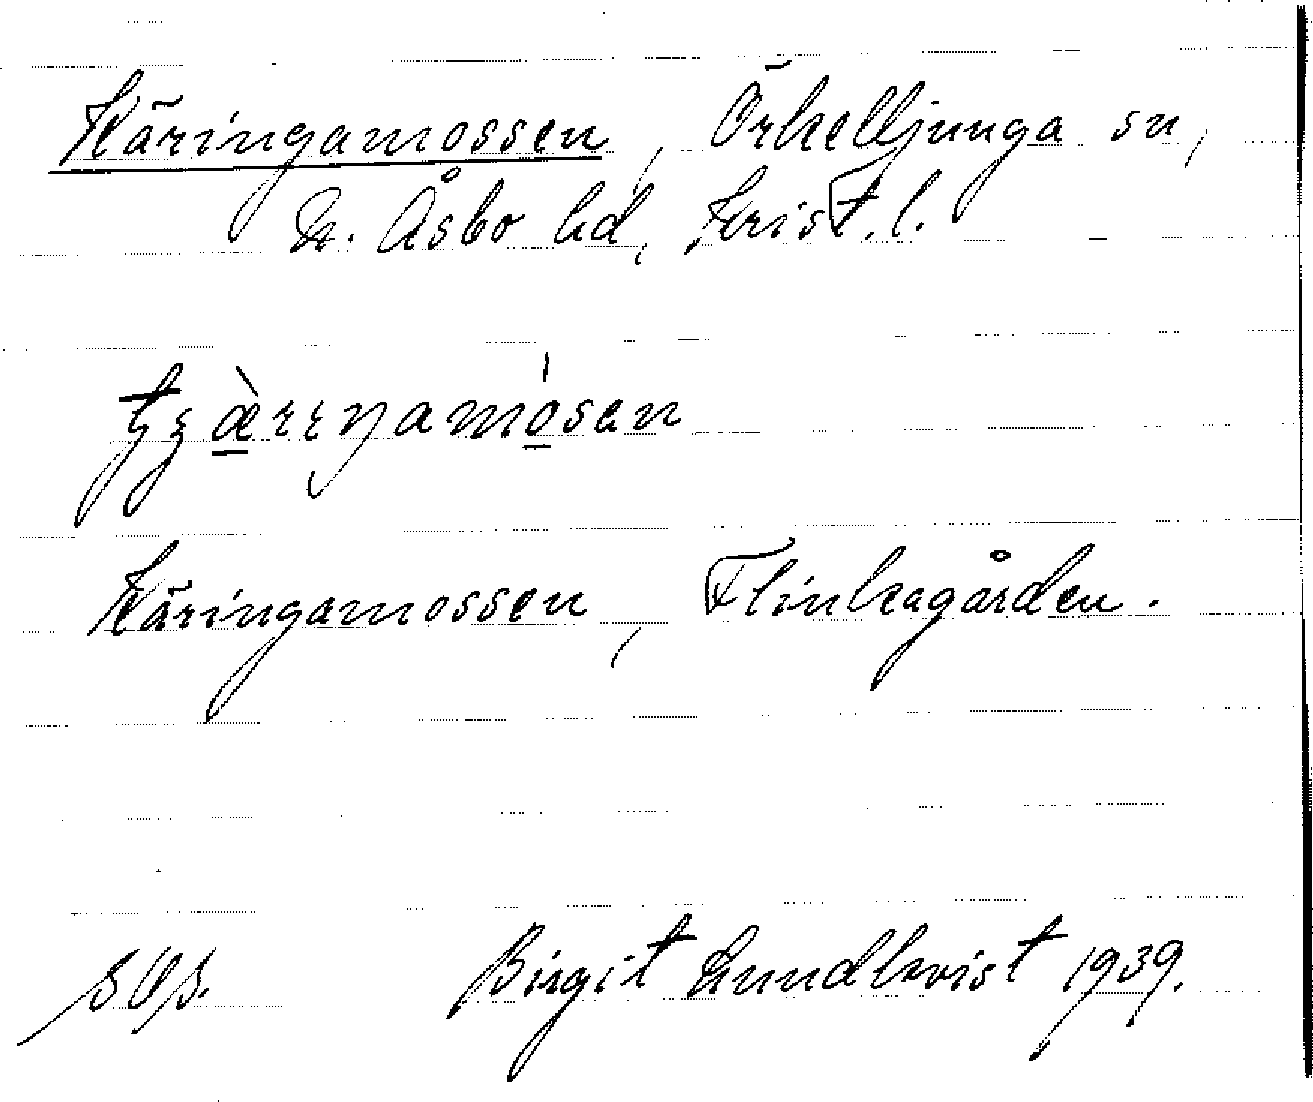 Käringamossen, Örkelljunga sn,
N. Åsbo hd, Krist. l.
Käringamossen, Flinkagården.
Birgit Lundkvist 1939.